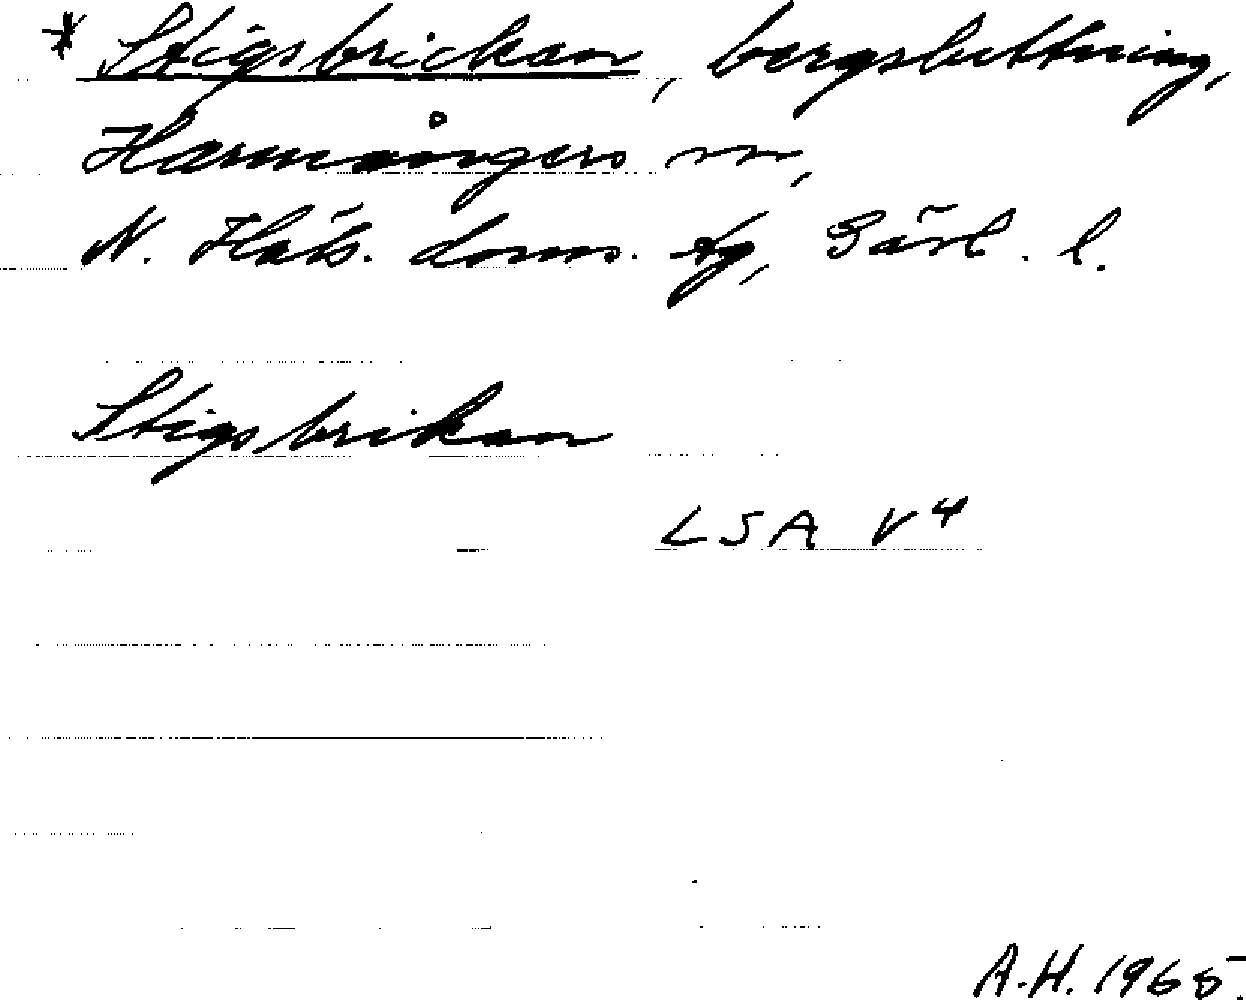 * Stigsbrickan, bergsluttning,
Harmångers sn,
N. Häls. doms. tg, Gävl. l.
Stigsbrikan
LSA V4
A.H. 1965.